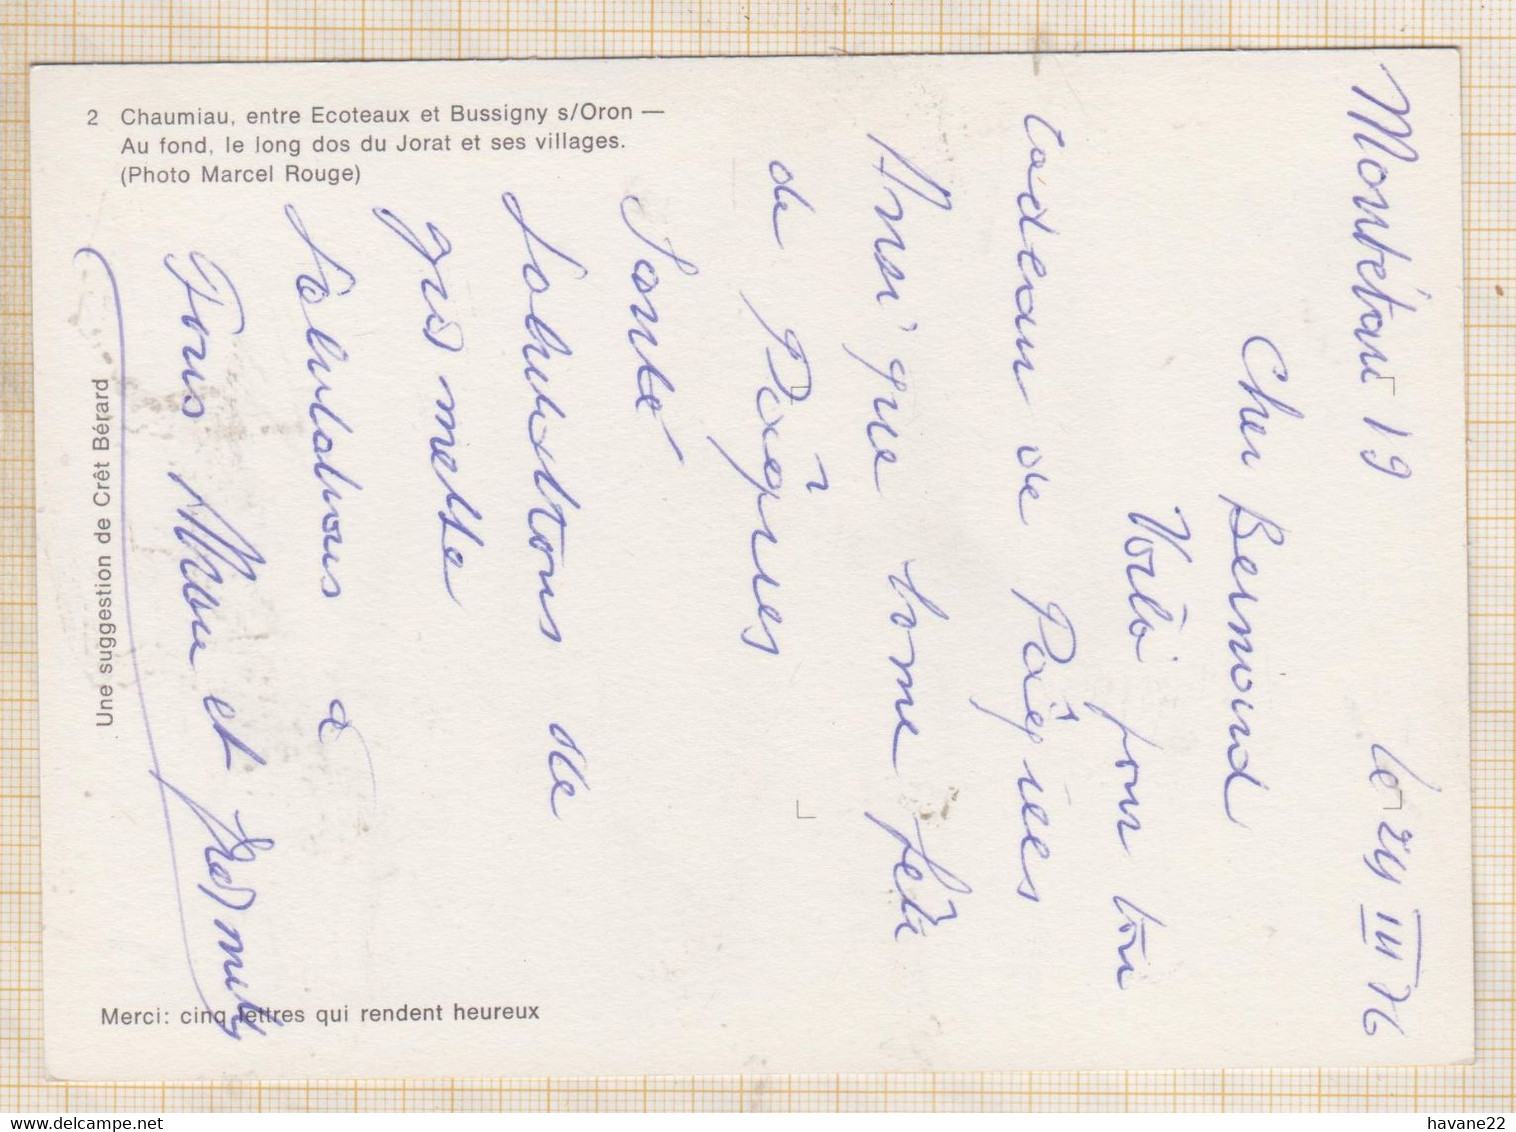 2 Chaumiau, entre Ecoteaux et Bussigny s/Oron —
Au fond, le long dos du Jorat et ses villages.
(Photo Marcel Rouge)
Une suggestion de Crêt Bérard
Merci: cinq lettres qui rendent heureux
19
le 24 III 76
Cher
Voilà pour toi
Cadeau de Pâques
Ainsi que bonne fête
de Pâques
Santé
Salutations de
Salutations à
Tous et
www.delcampe.net
havane22